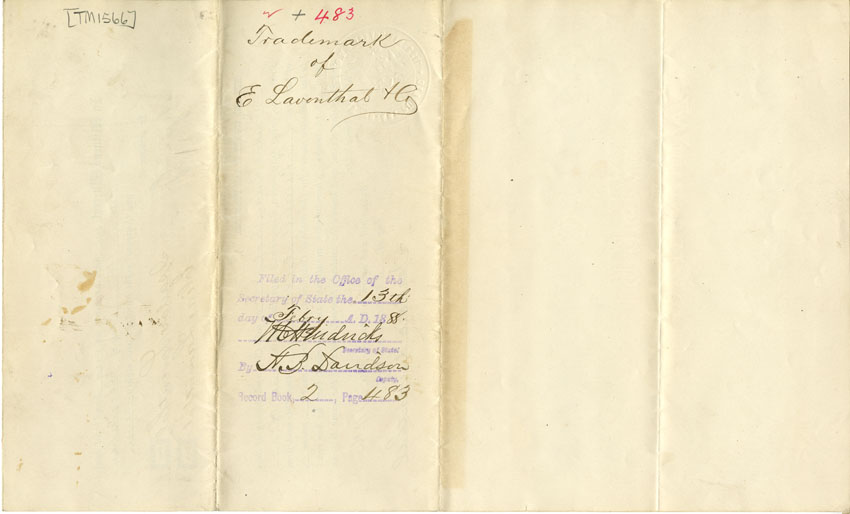 [TM1566]
✓ + 483
Trademark
of
E Laventhal & Co
Filed in the Office of the
Secretary of State the 13th
day of Feby A.D. 188
Secretary of State
By H. B. Davidson
Deputy.
Record Book, 2, Page 483